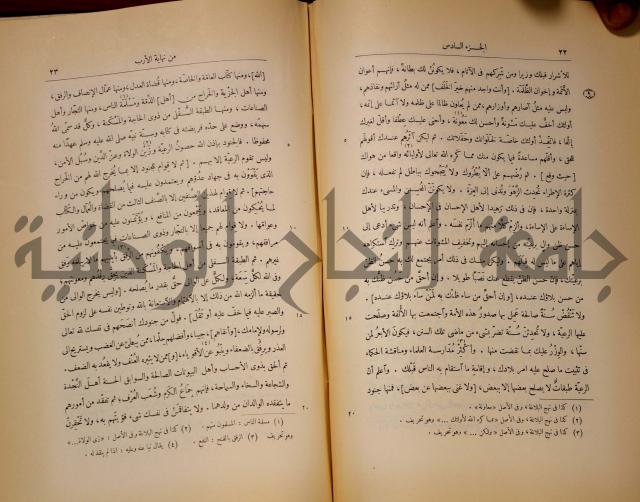 ٢٢
الجزء السادس
للأشرار قبلك وزيرا ومن شركهم فى الآثام، فلا يكونن لك بطانة، فإنهم أعوان
الأثمة وإخوان الظلمة، [وأنت واجد منهم خير الخلف] ممن له مثل آرائهم ونفاذهم،
وليس عليه مثل آصارهم وأوزارهم، ممن لم يعاون ظالما على ظلمه ولا آثما على إثمه،
أولئك أخف عليك مئونة وأحسن لك معونة، وأحنى عليك عطفا وأقل لغيرك
إلفا، فاتخذ أولئك خاصة لخلواتك وحفلاتك. ثم ليكن آثرهم عندك أقولهم
للحق، وأقلهم مساعدة فيما يكون منك مما كره الله تعالى لأوليائه واقعا من هواك
[حيث وقع]. ثم رضهم على ألا يطروك ولا يبجحوك بباطل لم تفعله، فإن
كثرة الإطراء تحدث الزهو وتدنى إلى العزة. ولا يكونن المحسن والمسىء عندك
بمنزلة واحدة، فإن فى ذلك تزهيدا لأهل الإحسان فى الإحسان، وتدريبا لأهل
الإساءة على الإساءة، وألزم كلا منهم ما ألزم نفسه. وأعلم أنه ليس شىء أدعى إلى
حسن ظن وال برعيته من إحسانه إليهم وتخفيف المئونات عنهم، وترك استكراهه
برعيتك، فإن حسن الظن يقطع عنك نصبا طويلا. وإن أحق من حسن ظنك به
من حسن بلاؤك عنده، [وإن أحق من ساء ظنك به لمن ساء بلاؤك عنده].
ولا تنقض سنة صالحة عمل بها صدور هذه الأمة وآجتمعت بها الألفة وصلحت
عليها الرعية، ولا تحدثن سنة تضر بشىء من ماضى تلك السنن، فيكون الأجر لمن
سنها، والوزر عليك بما نقضت منها. وأكثر مدارسة العلماء ومناقشة الحكماء
فى تثبيت ما صلح عليه أمر بلادك، وإقامة ما آستقام به الناس قبلك. وأعلم أن
الرعية طبقات لا يصلح بعضها إلا ببعض، [ولا غنى ببعضها عن بعض]، فمنها جنود
(١) كذا فى نهج البلاغة، وفى الأصل «معاونة».
٢٣
من نهاية الأرب
[الله]، ومنها كتاب العامة والخاصة، ومنها قضاة العدل، ومنها عمال الإنصاف والرفق،
ومنها أهل الجزية والخراج من [أهل] الذمة ومسلمة الناس، ومنها التجار وأهل
الصناعات، ومنها الطبقة السفلى من ذوى الحاجة والمسكنة، وكل قد سمى الله
سهمه، ووضع على حده فريضته فى كتابه وسنة نبيه صلى الله عليه وسلم عهدا منه
محفوظا. فالجنود بإذن الله حصون الرعية وزين الولاة وعز الدين وسبل الأمن،
وليس تقوم الرعية إلا بهم. [ثم لا قوام للجنود إلا بما يخرج الله لهم من الخراج
الذى يقوون به فى جهاد عدوهم ويعتمدون عليه فيما يصلحهم ويكون من وراء
حاجتهم]. ثم لا قوام لهذين الصنفين إلا بالصنف الثالث من القضاة والعمال والكتاب
لما يحكمون من المعاقد، ويجمعون من المنافع، ويؤتمنون عليه من خواص الأمور
وعوامها، ولا قوام لهم جميعا إلا بالتجار وذوى الصناعات فيما يجتمعون عليه من
وفى الله لكل سعة، ولكل على الوالى حق بقدر ما يصلحه. [وليس يخرج الوالى من
حقيقة ما ألزمه الله من ذلك إلا بالاهتمام والاستعانة بالله وتوطين نفسه على لزوم الحق
والصبر عليه فيما خف عليه أو ثقل]. فول من جنودك أنصحهم فى نفسك لله تعالى
ولرسوله ولإمامك، و[أنقاهم] جيبا، وأفضلهم حلما، ممن يبطئ عن الغضب ويستريح إلى
العذر ويرفق بالضعفاء وينبو عن الأقوياء، [و]ممن لا يثيره العنف ولا يقعد به الضعف.
ثم ألحق بذوى الأحساب وأهل البيوتات الصالحة والسوابق الحسنة أهل النجدة
والشجاعة والسخاء والسماحة، فإنهم جماع الكرم وشعب العرف، ثم تفقد من أمورهم
ما يتفقده الوالدان من ولدهما. ولا يتفاقمن فى نفسك شىء قويتهم به، ولا تحقرن
(١) مسلمة الناس: المسلمون منهم.
(٢) كذا فى نهج البلاغة، وفى الأصل: «ذوى الولاة...»
وهو تحريف.
جامعة النجاح الوطنية